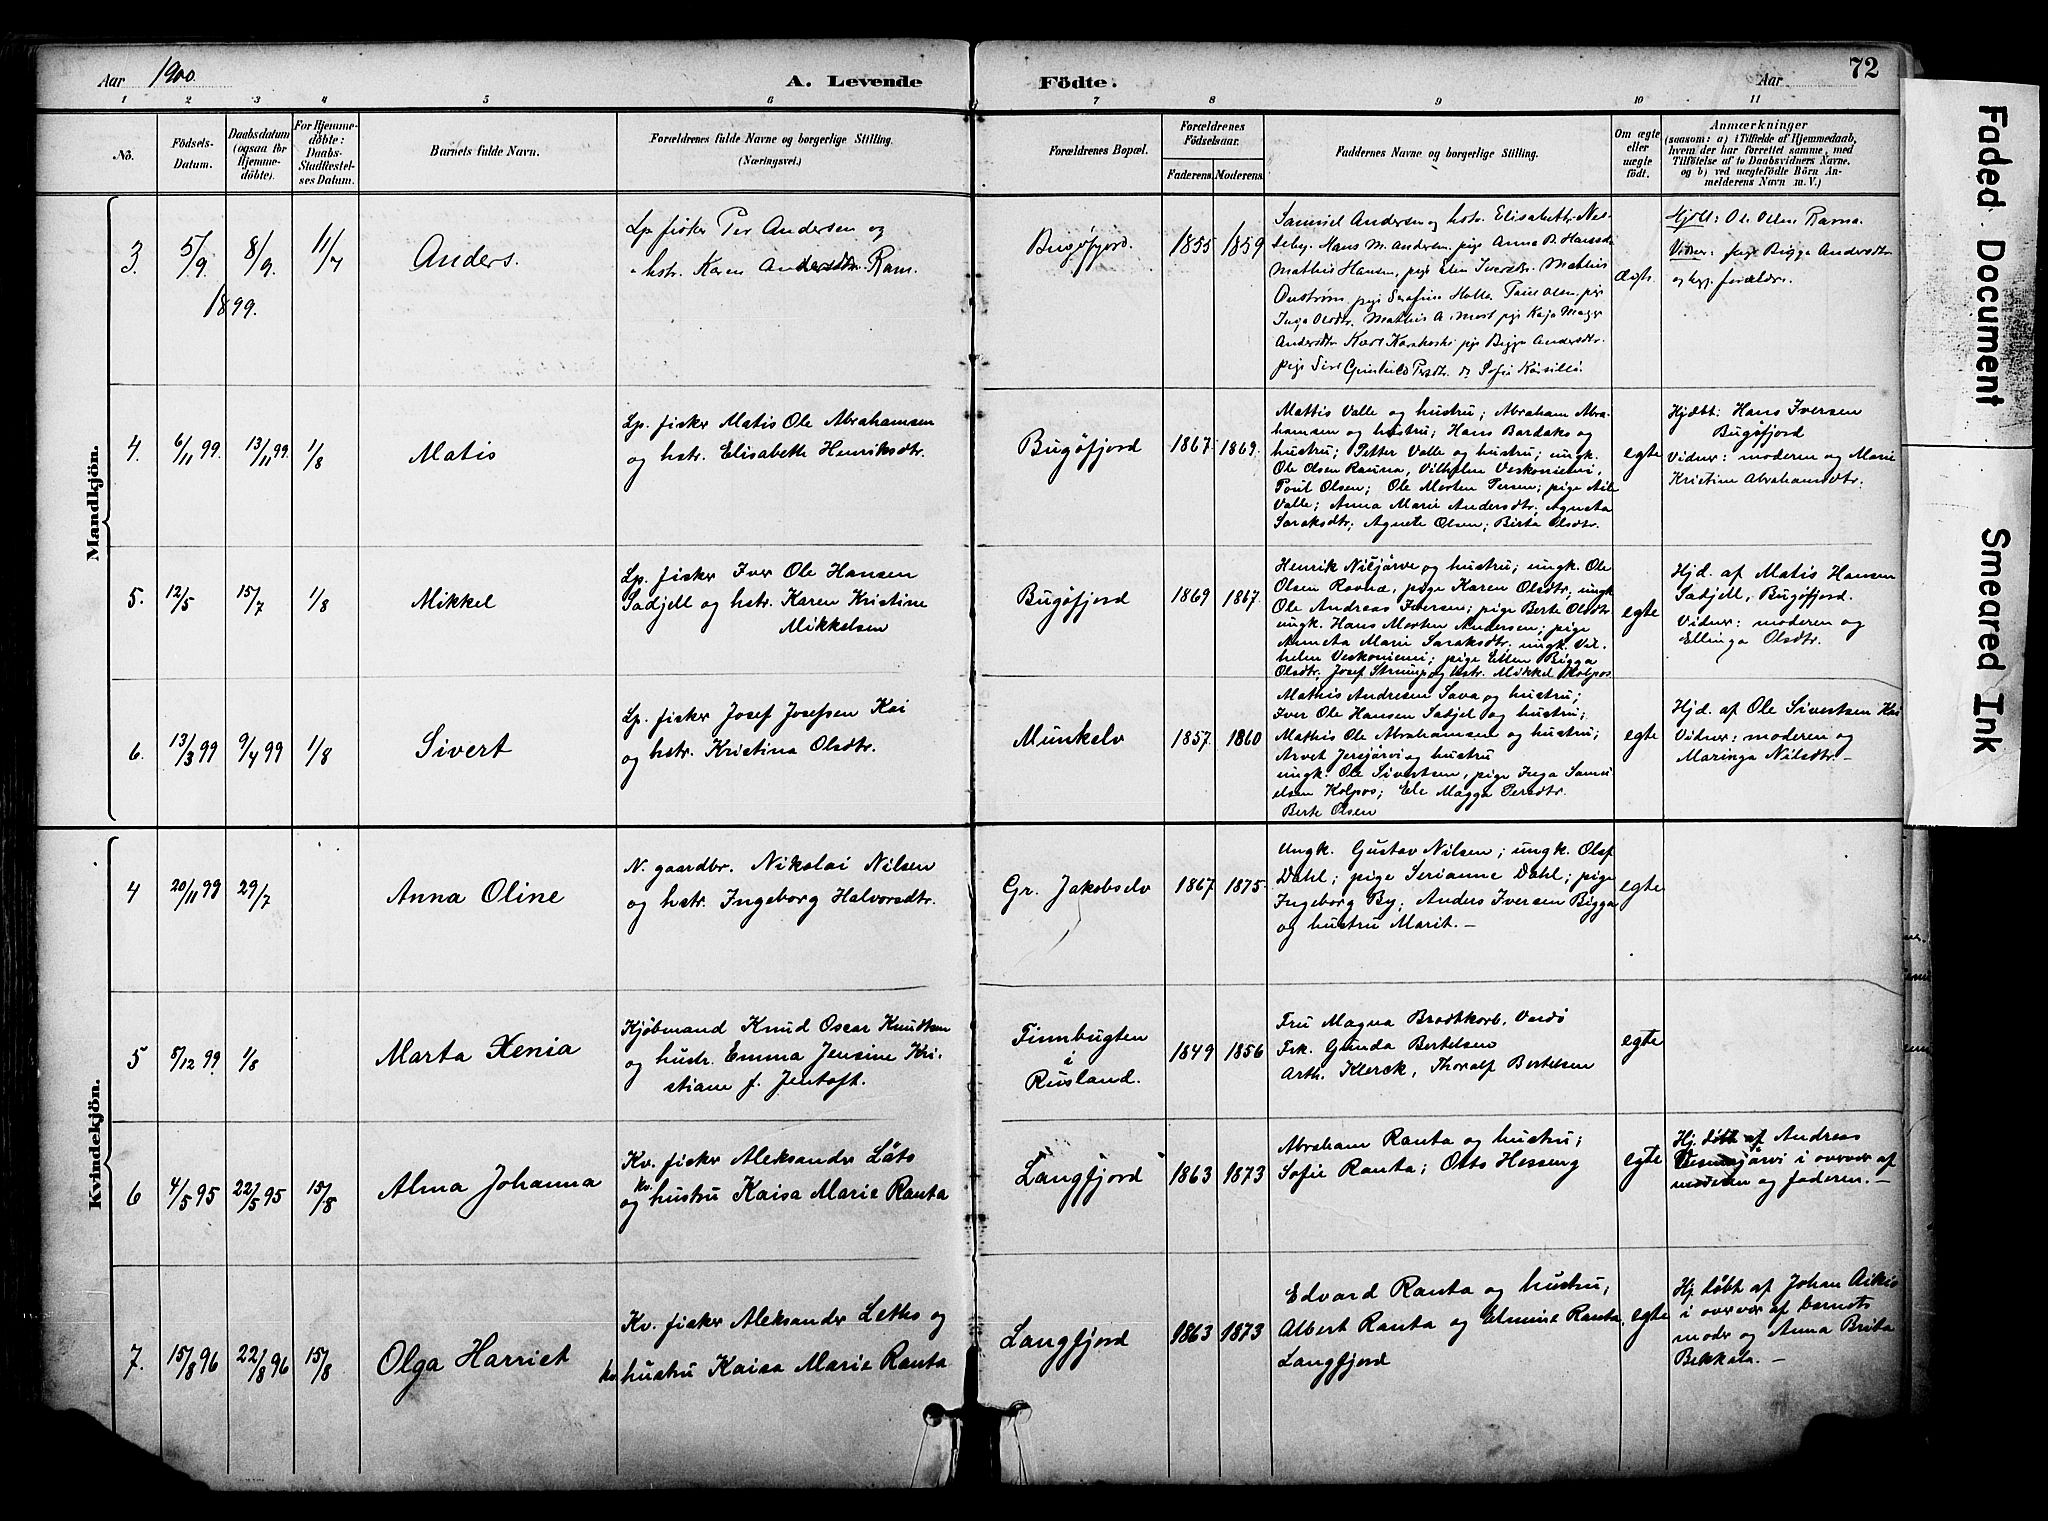 Aar 1900.
A. Levende
Födte.
Aar
72
1 2 3 4 5 6 7 8 9 10 11
No.
Födsels-
Datum.
Daabsdatum
(ogsaa for
Hjemme-
döbte).
For Hjemme-
döbte:
Daabs-
Stadfæstel-
ses Datum.
Barnets fulde Navn.
Forældrenes fulde Navne og borgerlige Stilling.
(Næringsvei.)
Forældrenes Bopæl.
Forældrenes
Födselsaar.
Faderens.
Moderens.
Faddernes Navne og borgerlige Stilling.
Om ægte
eller
uægte
födt.
Anmærkninger
(saasom: a) i Tilfælde af Hjemmedaab,
hvem der har forrettet samme, med
Tilföielse af to Daabsvidners Navne.
og b) ved uægtefödte Börn An-
melderens Navn m. V.)
Mandkjön.
3. 5/9 1899. 8/9. 11/7
Anders.
Lp. fisker Per Andersen og
hstr. Karen Andersdtr. Ram.
Bugøfjord.
1855 1859
Samuel Andersen og hstr. Elisabeth Nes-
seby. Hans M. Andersen, pige Anna B. Hansdtr.
Mathis Hansen, pige Elen Iversdtr. Mathis
pige Serafine Holle Poul Olsen, pige
Inga Olsdtr. Mathis A. pige Kaja Magga
Andersdtr. Karl pige Bigga Andersdtr.
pige Siri Gunhild Persdtr. og Sofie
ægte.
Hjdbt: Ole Olsen Ravna.
Vidner: pige Bigga Andersdtr
og begj. forældre.
4. 6/11 99. 13/11 99. 1/8
Matis
Lp. fisker Matis Ole Abrahamsen
og hstr. Elisabeth Henriksdtr.
Bugøfjord
1867 1869
Mattis Valle og hustru; Abraham Abra-
hamsen og hustru; Hans Bardaks og
hustru; Petter Valle og hustru; ungk.
Ole Olsen Rauna, Vilhelm Veskoniemi,
Poul Olsen; Ole Morten Persen; pige
Valle; Anna Marie Andersdtr; Agneta
Saraksdtr; Agnete Olsen; Birta Olsdtr.
egte
Hjdbt: Hans Iversen
Bugøfjord
Vidner: moderen og Marie
Kristine Abrahamsdtr.
5. 12/5 15/7 1/8
Mikkel
Lp. fisker Iver Ole Hansen
Sadjell og hstr. Karen Kristine
Mikkelsen
Bugøfjord
1869 1867
Henrik Niljärvi og hustru; ungk. Ole
Olsen Ravna, pige Karen Olsdtr; ungk
Ole Andreas Iversen; pige Berte Olsdtr.
ungk. Hans Morten Andersen; pige
Anneta Marie Saraksdtr. ungk. Vil-
helm Veskoniemi; pige Ellen Bigga
Olsdtr, Josef Strump og hstr. Mikkel Kolpos
egte
Hjd. af Matis Hansen
Sadjell, Bugøfjord.
Vidner: moderen og
Ellinga Olsdtr.
6. 13/3 99 9/4 99 1/8
Sivert
Lp. fisker Josef Josefsen Kai
og hstr. Kristina Olsdtr.
Munkelv
1857 1860
Mathis Andresen Sava og hustru;
Iver Ole Hansen Sadjel og hustru;
Mathis Ole Abrahamsen og hustru;
Arvet Jersjärvi og hustru
ungk. Ole Sivertsen, pige Inga Samu-
elsen Kolpos; Ele Magga Persdtr.
Berte Olsen
egte
Hjd. af Ole Sivertsen Kai
Vidner: moderen og
Maringa Nilsdtr. —
Kvindekjön.
4 20/11 99 29/7
Anna Oline
N. gaardbr. Nikolai Nilsen
og hstr. Ingeborg Halvorsdtr.
Gr. Jakobselv
1867 1875
Ungk. Gustav Nilsen; ungk. Olaf
Dahl; pige Serianne Dahl; pige
Ingeborg By; Anders Iversen Bigga
og hustru Marit. —
egte
5 5/12 99. 1/8
Marta Xenia
Kjøbmand Knud Oscar Knudtsen
og hustr. Emma Jensine Kri-
stiane f. Jentoft.
Finnbugten
i
Rusland.
1849 1856
Fru Magna Brodtkorb, Vardö
Frk. Gunda Bertelsen
Arth. Klerck, Thoralf Bertelsen
egte
6 4/5 95 22/5 95 15/8
Alma Johanna
Kv. fisker Aleksander Läts
og kv. hustru Kaisa Marie Ranta
Langfjord
1863 1873
Abraham Ranta og hustru;
Sofie Ranta; Otto Hesseng
egte
Hj. døbt af Andreas
i overvær af
moderen og faderen. —
7. 15/8 96 22/8 96 15/8
Olga Harriet
Kv. fisker Aleksander Leths og
kv hustru Kaisa Marie Ranta
Langfjord
1863 1873
Edvard Ranta og hustru;
Albert Ranta og Elmine Ranta,
Langfjord
egte
Hj. døbt af Johan Aikio
i overvær af barnets
moder og Anna Brita
Bekkala. —
Faded Document
Smeared Ink